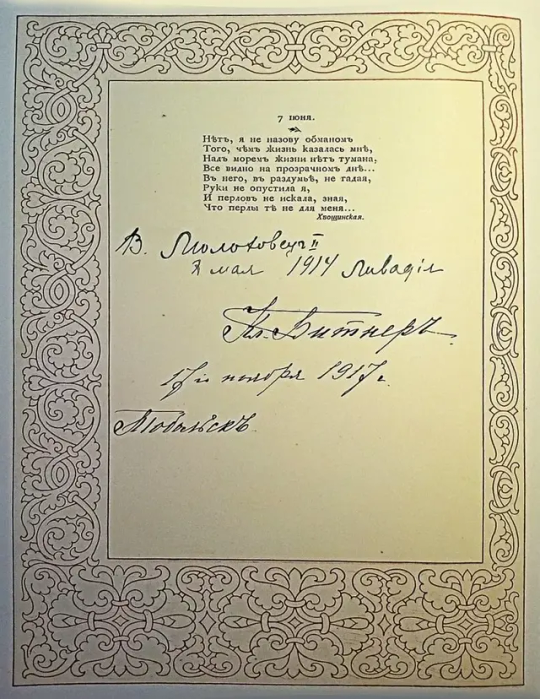 7 іюня.
Нѣтъ, я не назову обманомъ
Того, чѣмъ жизнь казалась мнѣ,
Надъ моремъ жизни нѣтъ тумана,
Все видно на прозрачномъ днѣ...
Въ него, въ раздумьѣ, не гадая,
Руки не опустила я,
И перловъ не искала, зная,
Что перлы тѣ не для меня...
Хвощинская.
В. Молоховецъ II
мая 1914 Ливадія
Кл. Битнеръ.
17го ноября 1917 г.
Тобольскъ.